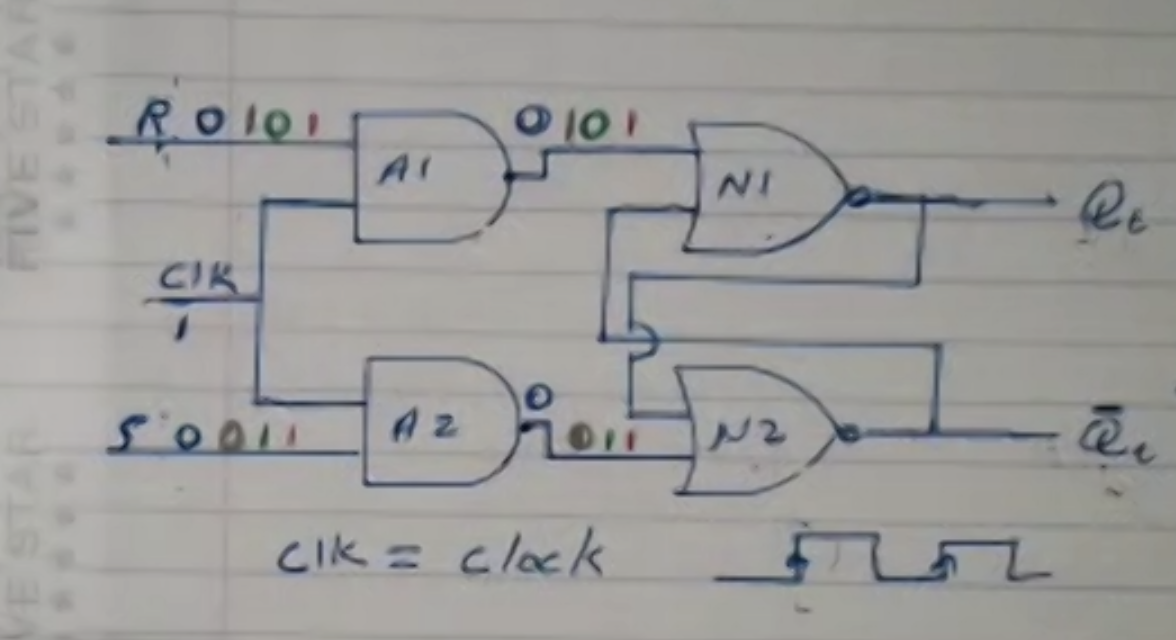 FIVE STAR
R 0 1 0 1
0 1 0 1
A1
N1
Qt
Clk
1
S 0 0 1 1
A2
0
0 1 1
N2
Q̅t
Clk = Clock
VE STAR